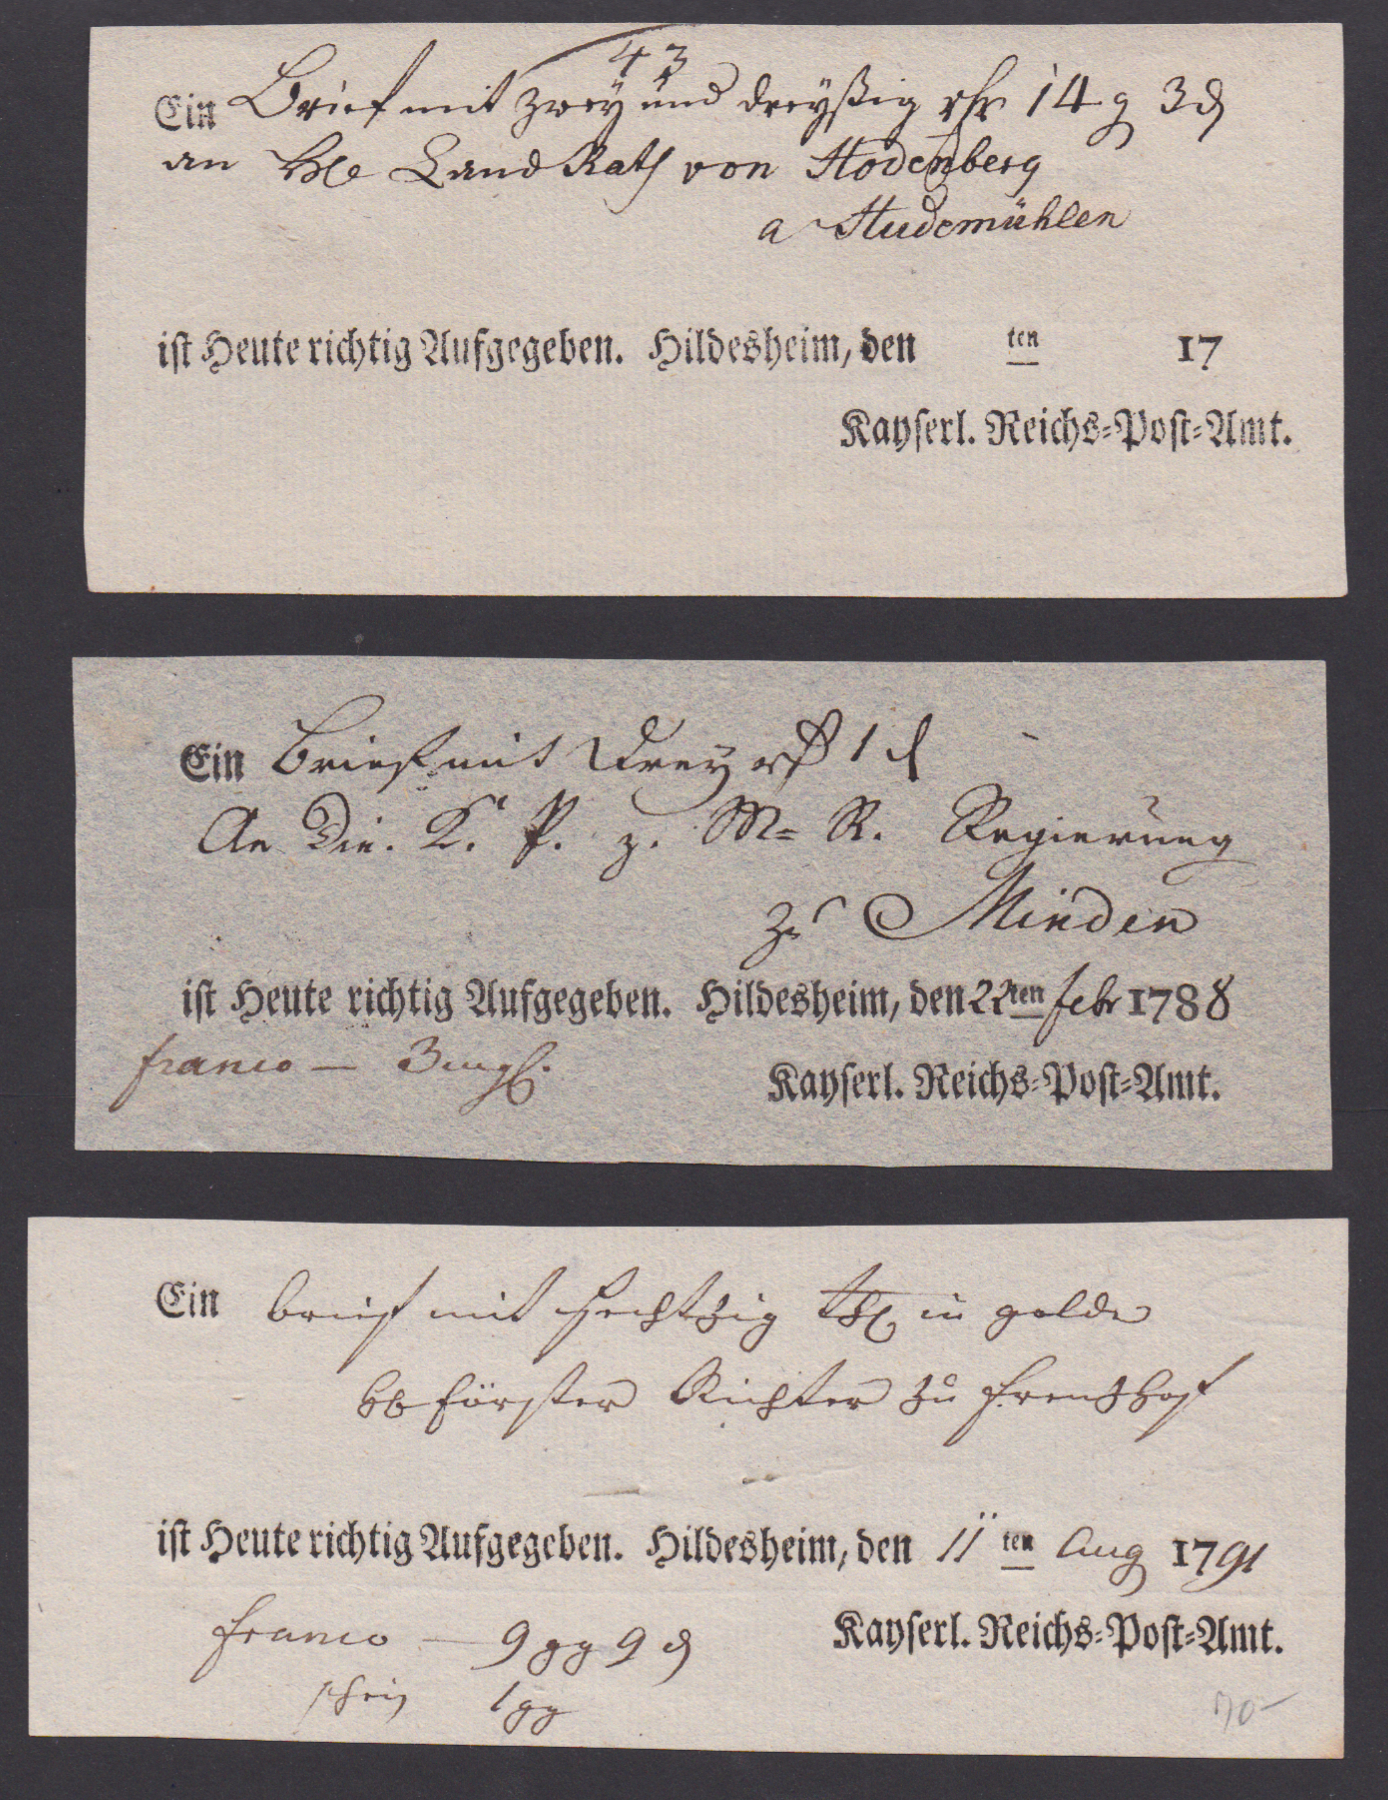 43
Ein Brief mit zwey und dreyßig rhr 14 g 3 d
an He Land Rath von Hodenberg
a Hudemühlen
ist Heute richtig Aufgegeben. Hildesheim, den ten 17
Kayserl. Reichs-Post-Amt.
Ein Brief mit Drey 1 d
An Die. K. P. z. M= R. Regierung
zu Minden
ist Heute richtig Aufgegeben. Hildesheim, den 22ten febr 1788
franco — 3
Kayserl. Reichs-Post-Amt.
Ein brief mit sechtzig thl in golde
förster Richter zu
ist Heute richtig Aufgegeben. Hildesheim, den 11ten Aug 1791
franco — 9 gg 9 d
Kayserl. Reichs-Post-Amt.
schein 1 gg
70-